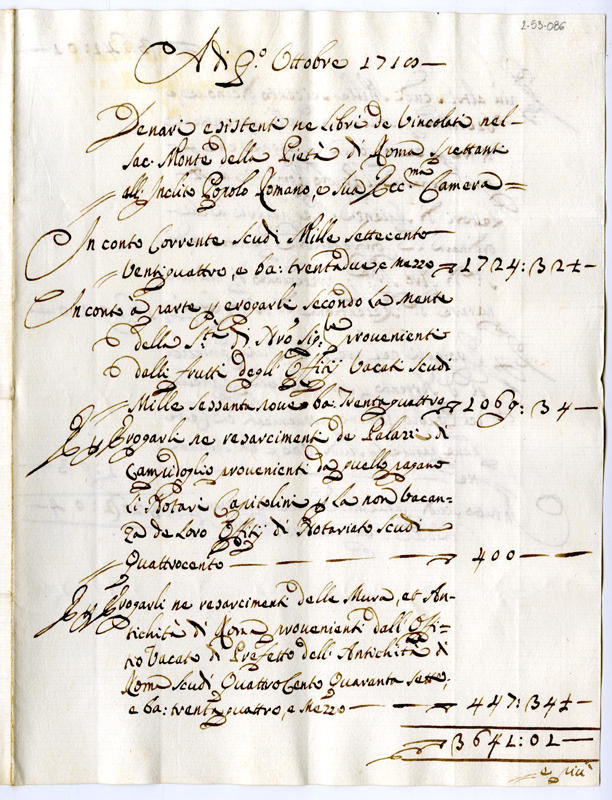 2-53-086
A dì P.º Ottobre 1710 —
Denari esistenti ne libri de Vincolati nel
Sac: Monte della Pietà di Roma spettanti
all: Inclito Popolo Romano, e Sua Ecc:ma Camera =
In conto Corrente scudi Mille settecento
Ventiquattro, e ba: trentadue e mezzo — 1724: 32½ —
In conto à parte p erogarli secondo la mente
della S.tà di Nro Sig.re provenienti
dalli frutti degl' Offitij Vacati scudi
Mille sessanta nove ba: Trenta quattro — 1069: 34 —
E p Erogarli ne resarcimenti de Palazzi di
Campidoglio provenienti da quello pagano
li Notari Capitolini p la non Vacan-
za de Loro Offitij di Notariato scudi
Quattrocento — 400 —
E p Erogarli ne resarcimenti delle Mura, et An-
tichità di Roma provenienti dall' Offi-
tio Vacato di Prefetto dell' Antichità di
Roma scudi Quattro Cento Quaranta sette,
e ba: trenta quattro, e Mezzo — 447: 34½ —
3641: 01 —
e più